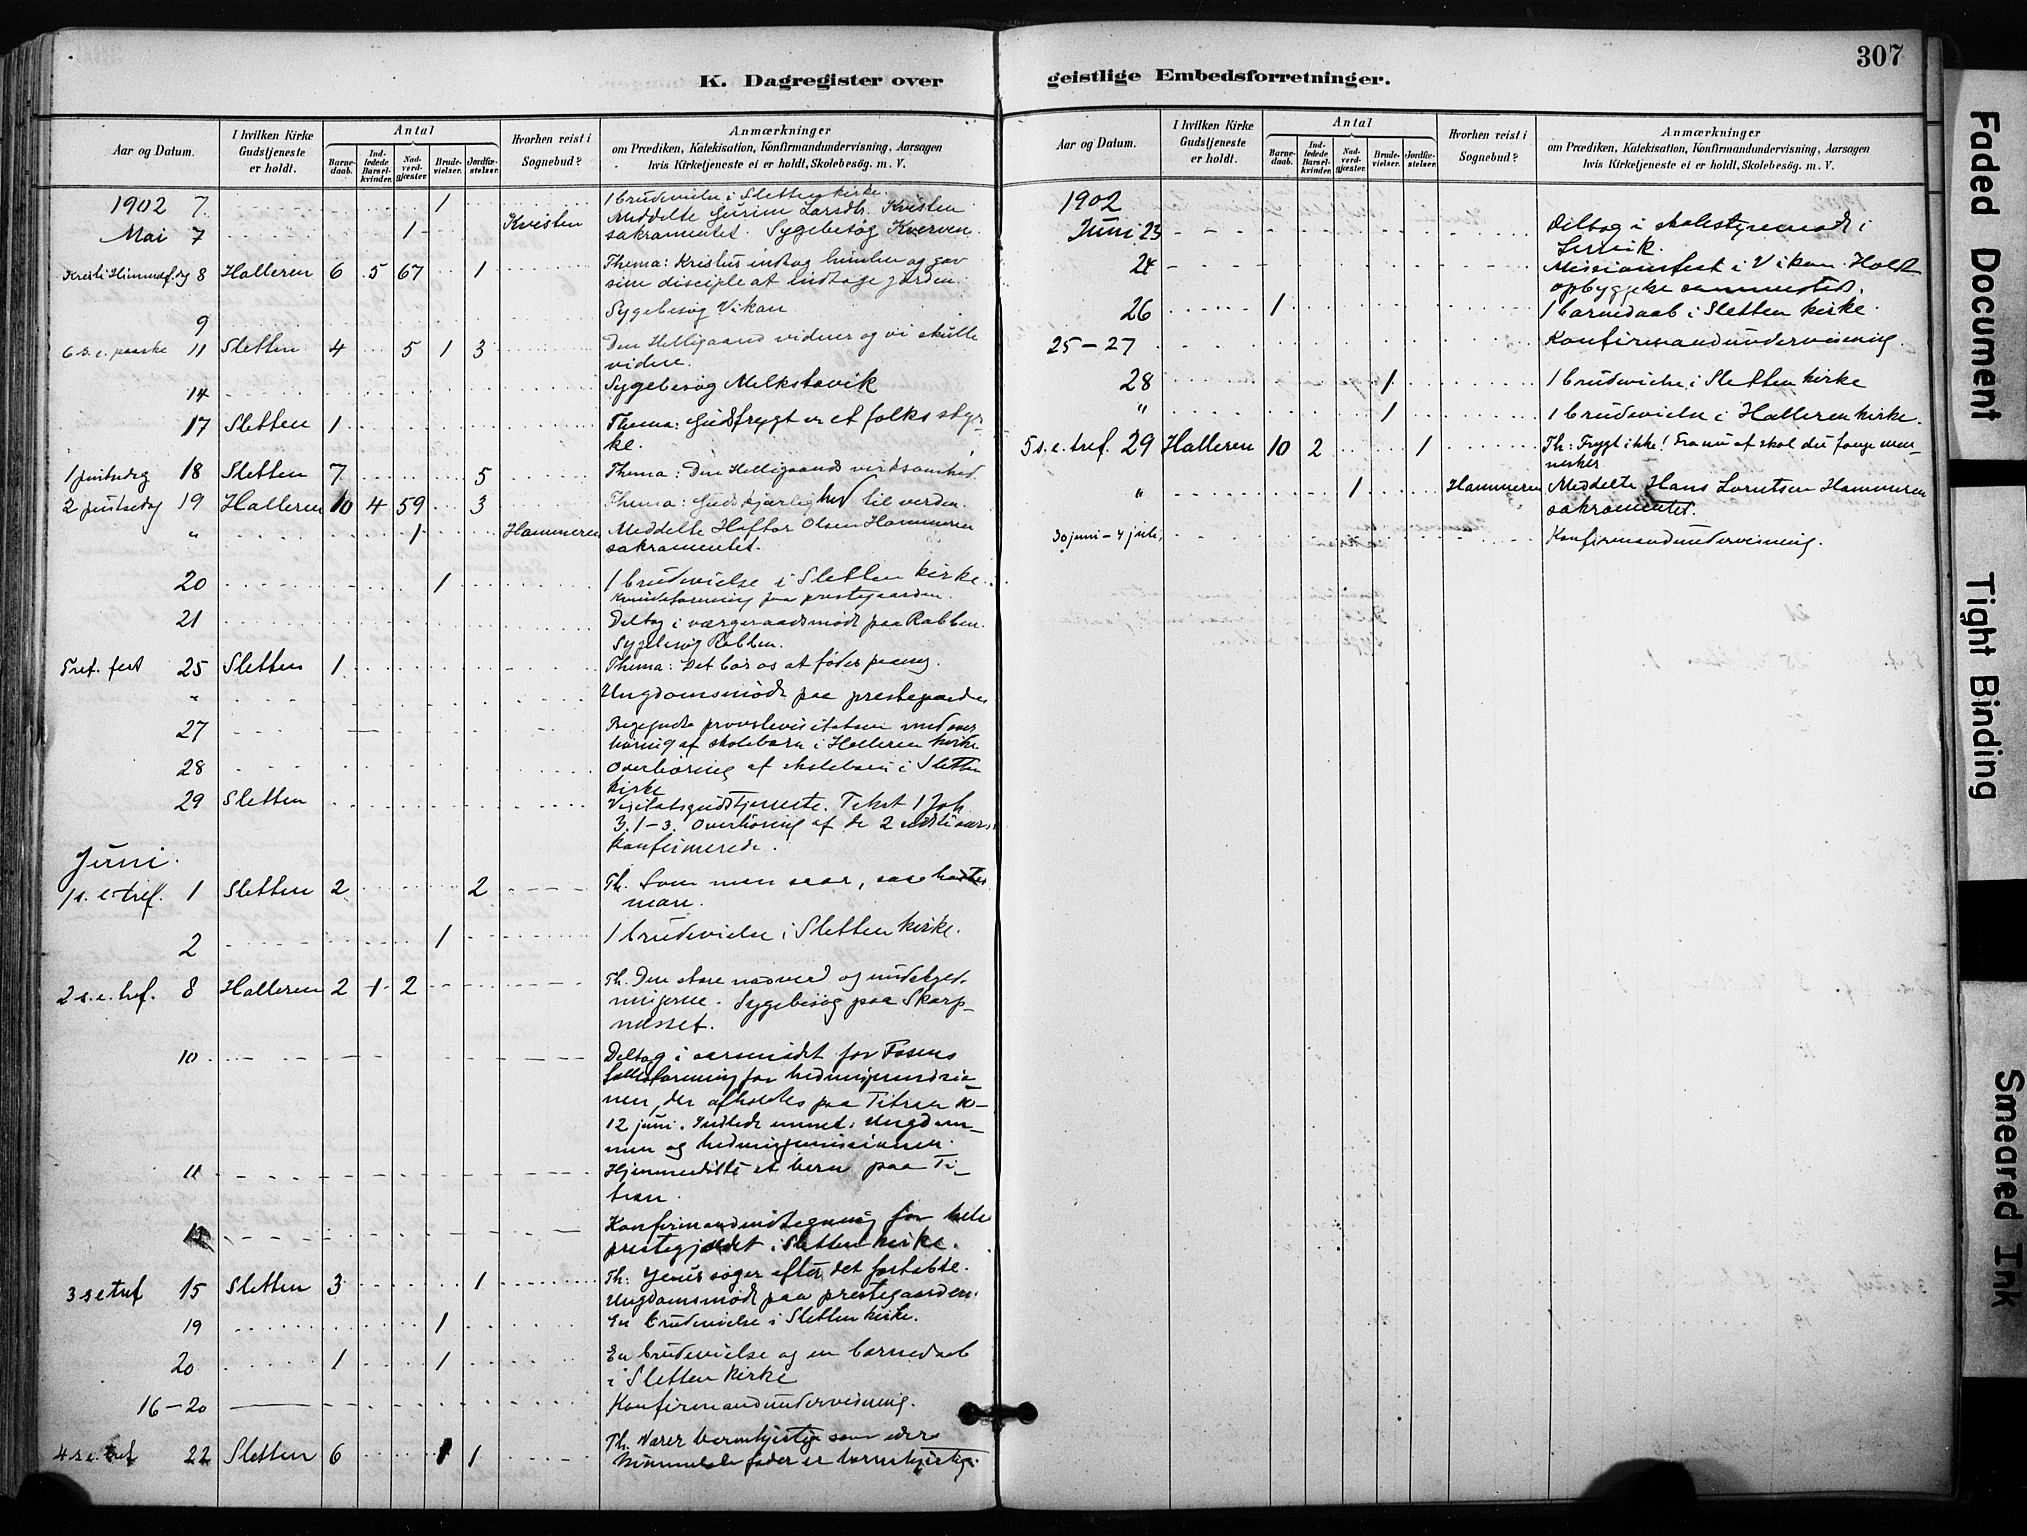 K. Dagregister over
Aar og Datum.
I hvilken Kirke Gudstjeneste er holdt.
Antal
Barnedaab.
Indledede Barselkvinder.
Nadverdgjæster.
Brudevielser.
Jordfæstelser.
Hvorhen reist i Sognebud?
Anmærkninger
om Prædiken, Katekisation, Konfirmandundervisning, Aarsagen
hvis Kirketjeneste ei er holdt, Skolebesøg. m. V.
1902 7. 1 1 brudevielse i Sletten kirke.
Mai 7 1 Kvisten Meddelte Gurine Larsdtr. Kvisten
sakramentet. Sygebesøg Kverven.
Kristi Himmelf. dg 8 Halleren 6 5 67 1 Thema: Kristus indtog himlen og gav
sine disciple at indtage jorden.
9 Sygebesøg Vikan
6 s. e. paaske 11 Sletten 4 5 1 3 Den Helligaand vidner og vi skulle
vidne.
14 Sygebesøg Melkstavik
17 Sletten 1 Thema: Gudsfrygt er et folks styr-
ke.
1 pintsedag 18 Sletten 7 5 Thema: Den Helligaands virksomhed
2 pintsedag 19 Halleren 10 4 59 3 Thema: Guds kjærlighed til verden.
" 1 Hammeren Meddelte Haftor Olsen Hammeren
sakramentet.
20 1 1 brudevielse i Sletten kirke.
Kvindeforening paa prestegaarden.
21 Deltog i værgeraadsmøde paa Rabben.
Sygebesøg Rabben.
Tref. fest 25 Sletten 1 Thema: Det bør os at fødes paany.
" Ungdomsmøde paa prestegaarden
27 Begyndte provstevisitatsen med over
høring af skolebørn i Halleren kirke
28 Overhøring af skolebørn i Sletten
kirke
29 Sletten Visitatsgudstjeneste. Tekst 1 Joh
3. 1-3. Overhøring af de 2 sidste aars
konfirmerede.
Juni.
1 s. e. tref. 1 Sletten 2 2 Th. Som man saar, saa høster
man.
2 1 1 brudevielse i Sletten kirke.
2 s. e. tref. 8 Halleren 2 1 2 Th. Den store nadverd og undskyld-
ningerne. Sygebesøg paa Skarp-
næsset.
10 Deltog i aarsmødet for Fosens
fællesforening for hedningemissio-
nen, der afholdtes paa Titran 10-
12 juni. Indledte emnet: Ungdom-
men og hedningemissionen.
11 Hjemmedøbte et barn paa Ti-
tran.
Konfirmandindtegning for hele
prestegjældet i Sletten kirke.
3 s e tref 15 Sletten 3 1 Th: Jesus søger efter det fortabte.
Ungdomsmøde paa prestegaarden.
19 1 En brudevielse i Sletten kirke.
20 1 1 En brudevielse og en barnedaab
i Sletten kirke
16-20 Konfirmandundervisning.
4 s. e. tref 22 Sletten 6 1 1 Th. Værer barmhjertige som eders
himmelske fader er barmhjertig.
307
geistlige Embedsforretninger.
Aar og Datum.
I hvilken Kirke Gudstjeneste er holdt.
Antal
Barnedaab.
Indledede Barselkvinder.
Nadverdgjæster.
Brudevielser.
Jordfæstelser.
Hvorhen reist i Sognebud?
Anmærkninger
om Prædiken, Katekisation, Konfirmandundervisning, Aarsagen
hvis Kirketjeneste ei er holdt, Skolebesøg. m. V.
1902
Juni 23 Deltog i skolestyremøde i
24 Missionsfest i Vikan. Holdt
opbyggelse sammesteds.
26 1 1 barnedaab i Sletten kirke.
25-27 Konfirmandundervisning
28 1 1 brudevielse i Sletten kirke
" 1 1 brudevielse i Halleren kirke.
5 s. e. tref. 29 Halleren 10 2 1 Th: Frygt ikke! Fra nu af skal du fange men-
nesker
" 1 Hammeren Meddelte Hans Lorntsen Hammeren
sakramentet.
30 juni - 4 juli, Konfirmandundervisning.
Faded Document
Tight Binding
Smeared Ink